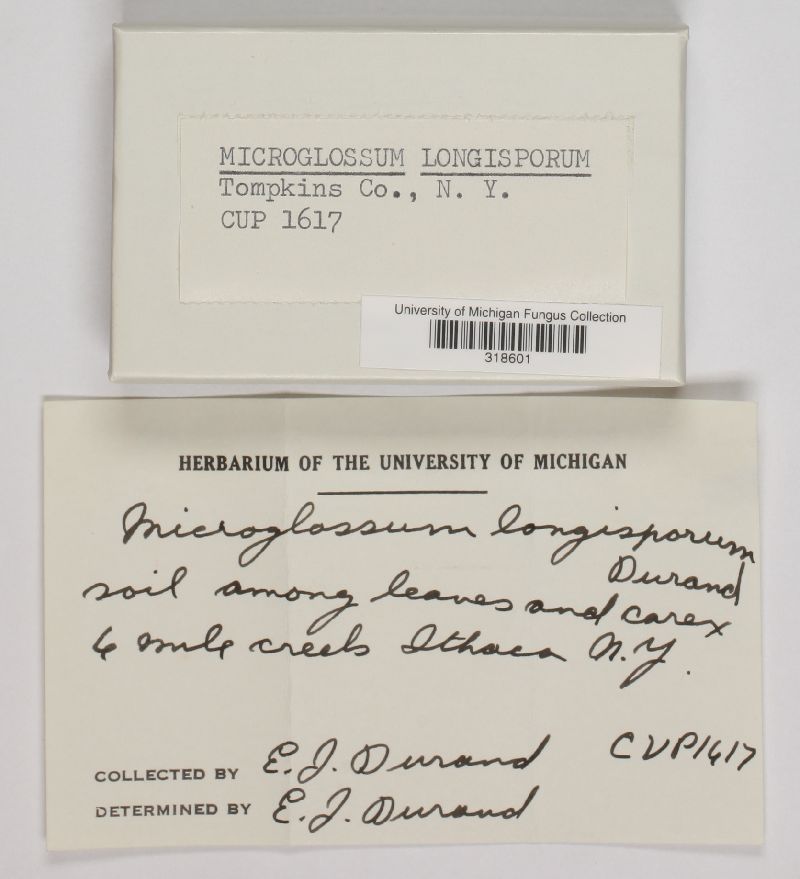 MICROGLOSSUM LONGISPORUM
Tompkins Co., N. Y.
CUP 1617
University of Michigan Fungus Collection
318601
HERBARIUM OF THE UNIVERSITY OF MICHIGAN
Microglossum longisporum
Durand
soil among leaves and carex
6 mile creek Ithaca N.Y.
CUP1617
COLLECTED BY E.J. Durand
DETERMINED BY E.J. Durand